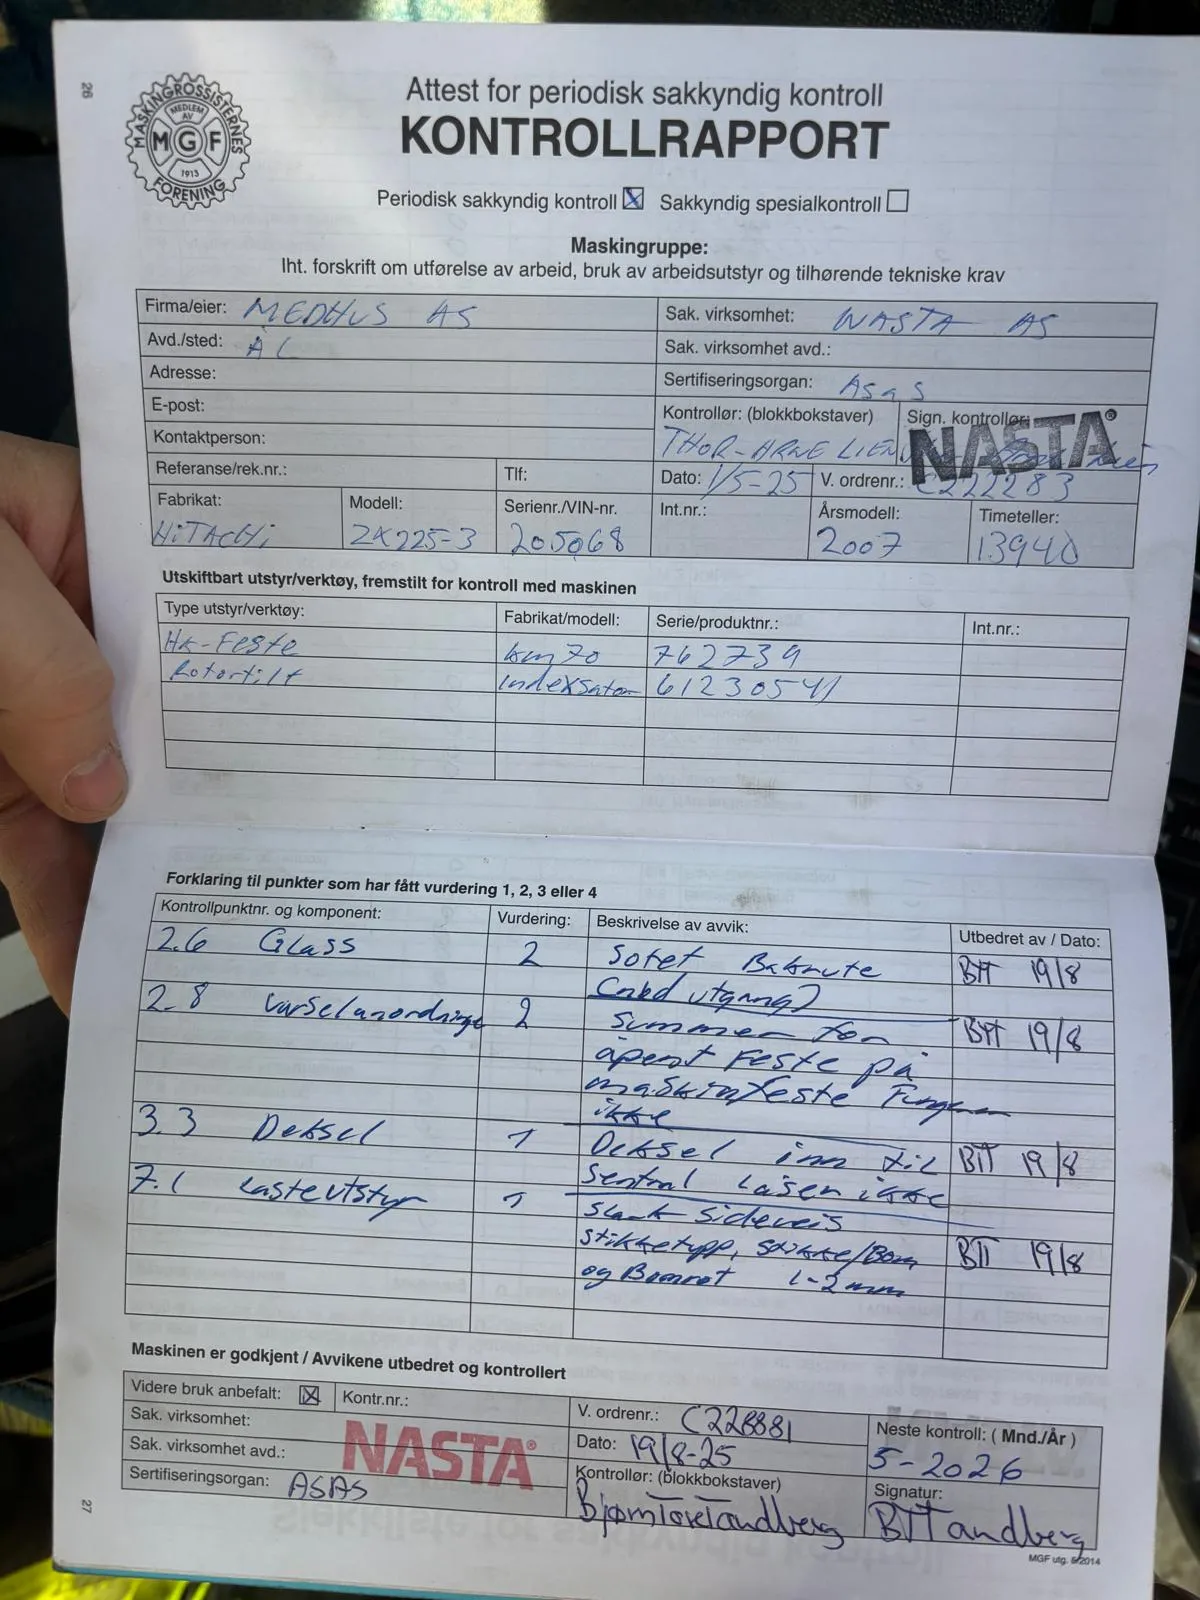 26
MASKINGROSSISTERNES FORENING
MEDLEM AV
MGF
1913
Attest for periodisk sakkyndig kontroll
KONTROLLRAPPORT
Periodisk sakkyndig kontroll ☒ Sakkyndig spesialkontroll ☐
Maskingruppe:
Iht. forskrift om utførelse av arbeid, bruk av arbeidsutstyr og tilhørende tekniske krav
Firma/eier: MEDHUS AS
Sak. virksomhet: NASTA AS
Avd./sted: ÅL
Sak. virksomhet avd.:
Adresse:
Sertifiseringsorgan: Asas
E-post:
Kontrollør: (blokkbokstaver) Sign. kontrollør:
THOR-ARNE LIEN NASTA
Kontaktperson:
Referanse/rek.nr.: Tlf: Dato: 1/5-25 V. ordrenr.: C222283
Fabrikat: Modell: Serienr./VIN-nr. Int.nr.: Årsmodell: Timeteller:
HiTACHi ZX225-3 205068 2007 13940
Utskiftbart utstyr/verktøy, fremstilt for kontroll med maskinen
Type utstyr/verktøy: Fabrikat/modell: Serie/produktnr.: Int.nr.:
HK-Feste km70 762739
Rotortilt Indexsator 61230541
Forklaring til punkter som har fått vurdering 1, 2, 3 eller 4
Kontrollpunktnr. og komponent: Vurdering: Beskrivelse av avvik: Utbedret av / Dato:
2.6 Glass 2 Sotet Bakrute BTT 19/8
(nød utgang)
2.8 Varselanordninge 2 Summer for BTT 19/8
åpent Feste på
maskinfeste Funger
ikke
3.3 Deksel 1 Deksel inn til BTT 19/8
sentral Låser ikke
7.1 Lasteutstyr 1 slark sideveis
stikketypp, stikke/Bom BTT 19/8
og Bomrot 1-2 mm
Maskinen er godkjent / Avvikene utbedret og kontrollert
Videre bruk anbefalt: ☒ Kontr.nr.: V. ordrenr.: C228881 Neste kontroll: ( Mnd./År )
Sak. virksomhet: NASTA Dato: 19/8-25 5-2026
Sak. virksomhet avd.: Kontrollør: (blokkbokstaver) Signatur:
Sertifiseringsorgan: ASAS Bjørn Tore Tandberg BTTandberg
27
MGF utg. 5/2014